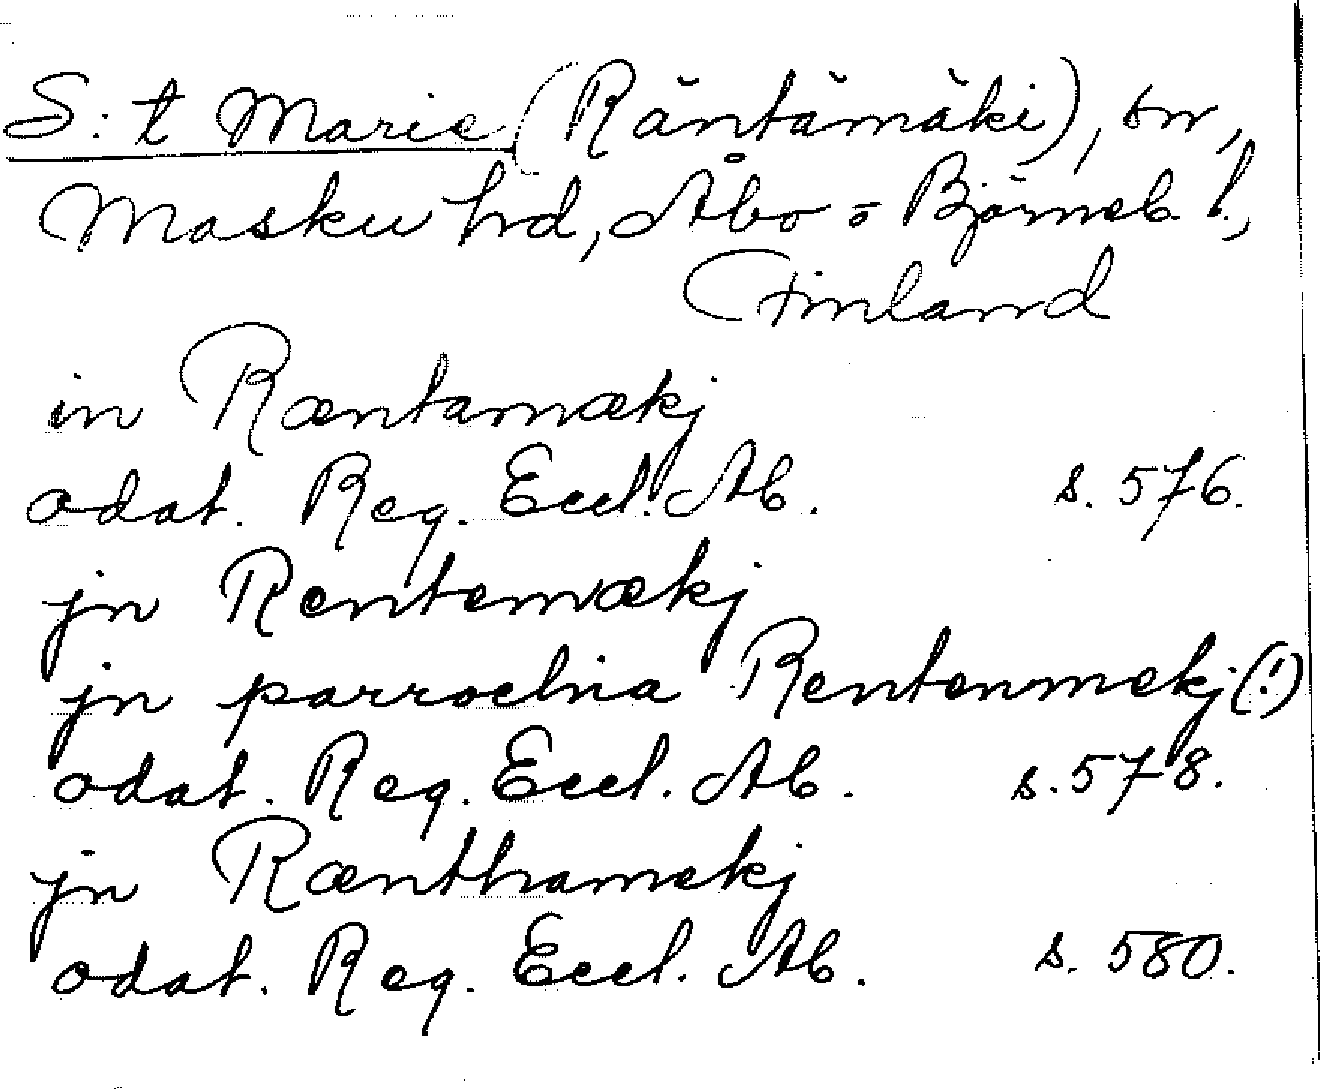 S:t Marie (Räntämäki), sn,
Masku hd, Åbo o Björneb. l.,
Finland
in Ræntamækj
odat. Reg. Eccl. Ab. s. 576.
jn Rentemækj
jn parrochia Rentenmekj (!)
odat. Reg. Eccl. Ab. s. 578.
jn Rænthamekj
odat. Reg. Eccl. Ab. s. 580.